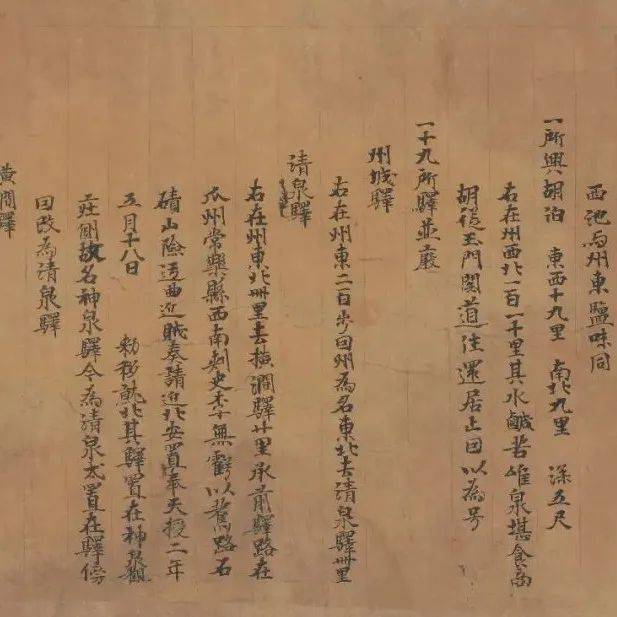 西池与州東鹽味同
一所興胡泊　東西十九里　南北九里　深五尺
右在州西北一百一十里其水鹹苦唯泉堪食商
胡從玉門關道往還居止因以為号
一十九所驛並廢
州城驛
右在州東二百步因州為名東北去清泉驛卌里
清泉驛
右在州東北卌里去橫澗驛廿里承前驛路在
瓜州常樂縣西南刺史李無虧以舊路石
磧山險迂曲近賊奏請近北安置奉天授二年
五月十八日　勅移就北其驛置在神泉觀
莊側故名神泉驛今為清泉戍置在驛傍
因改為清泉驛
黃澗驛